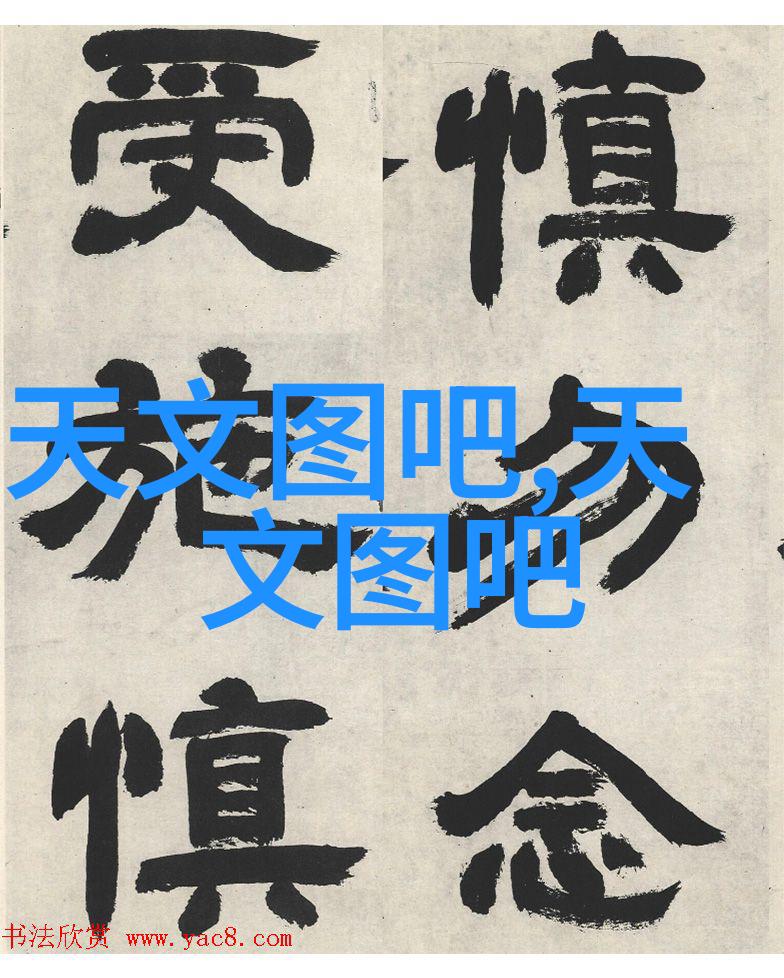 慎勿念
受施慎
天文图吧,天
文图吧
书法欣赏 www.yac8.com